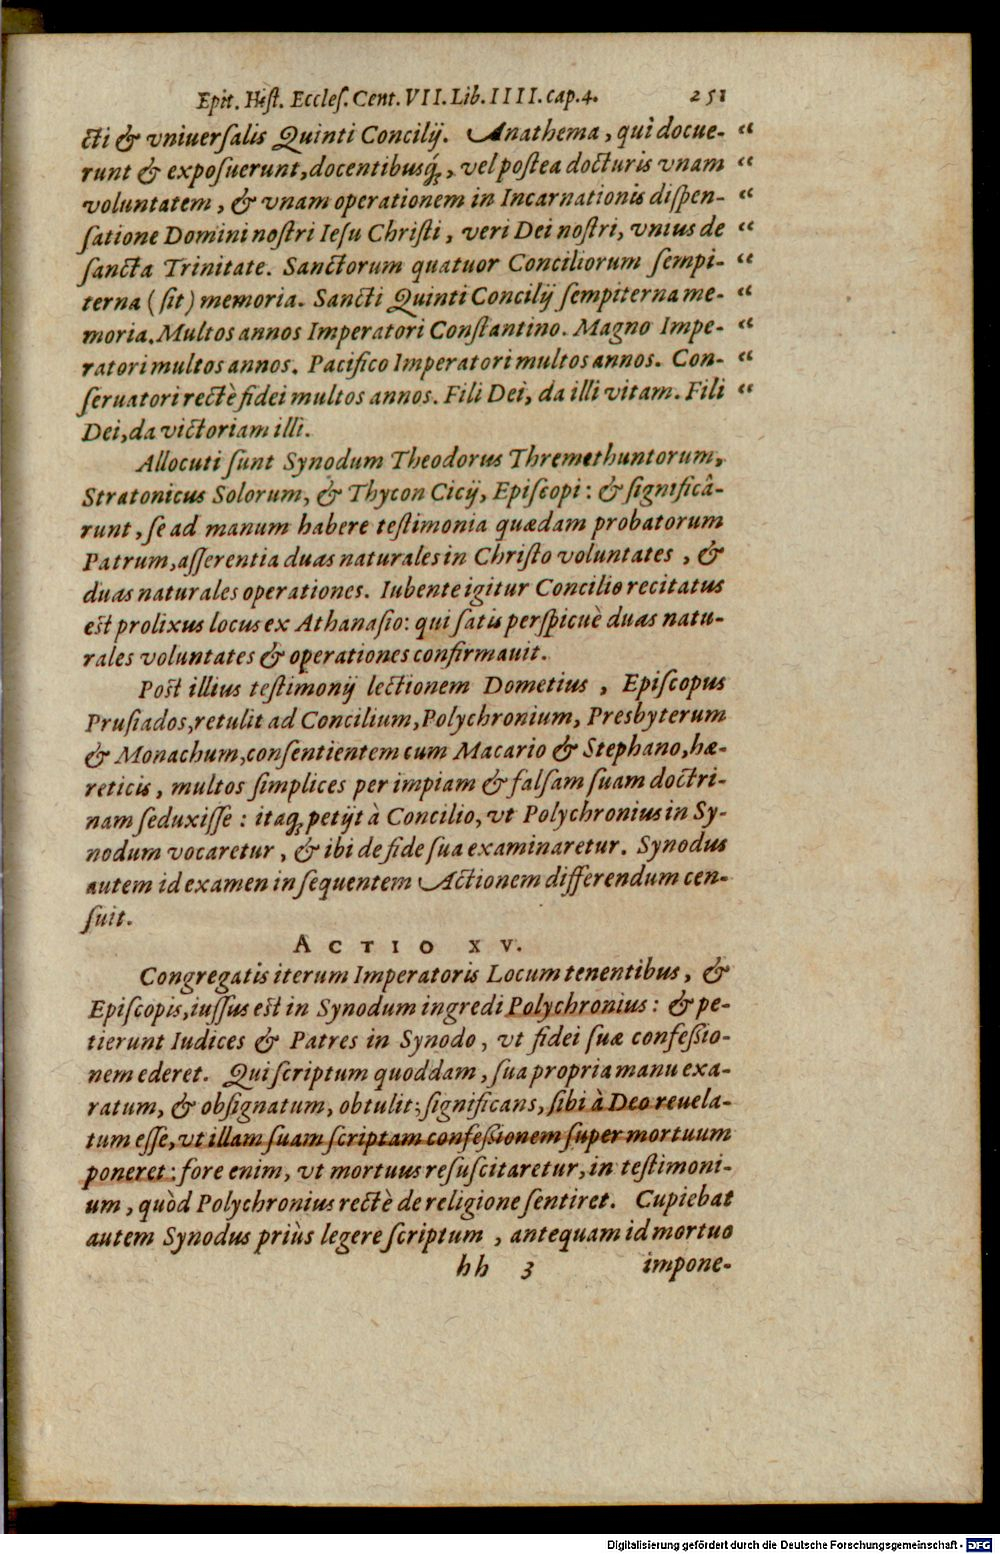 Epit. Hist. Eccleſ. Cent. VII. Lib. IIII. cap. 4. 251
cti & vniuerſalis Quinti Concilij. Anathema, qui docue- “
runt & expoſuerunt, docentibusq́;, vel poſtea docturis vnam “
voluntatem, & vnam operationem in Incarnationis diſpen- “
ſatione Domini noſtri Ieſu Chriſti, veri Dei noſtri, vnius de “
ſancta Trinitate. Sanctorum quatuor Conciliorum ſempi- “
terna (ſit) memoria. Sancti Quinti Concilij ſempiterna me- “
moria. Multos annos Imperatori Conſtantino. Magno Impe- “
ratori multos annos. Pacifico Imperatori multos annos. Con- “
ſeruatori rectè fidei multos annos. Fili Dei, da illi vitam. Fili “
Dei, da victoriam illi.
Allocuti ſunt Synodum Theodorus Thremethuntorum,
Stratonicus Solorum, & Thycon Cicij, Epiſcopi: & ſignificâ-
runt, ſe ad manum habere teſtimonia quædam probatorum
Patrum, aſſerentia duas naturales in Chriſto voluntates, &
duas naturales operationes. Iubente igitur Concilio recitatus
eſt prolixus locus ex Athanaſio: qui ſatis perſpicuè duas natu-
rales voluntates & operationes confirmauit.
Poſt illius teſtimonij lectionem Dometius, Epiſcopus
Pruſiados, retulit ad Concilium, Polychronium, Presbyterum
& Monachum, conſentientem cum Macario & Stephano, hæ-
reticis, multos ſimplices per impiam & falſam ſuam doctri-
nam ſeduxiſſe: itaq; petijt à Concilio, vt Polychronius in Sy-
nodum vocaretur, & ibi de fide ſua examinaretur. Synodus
autem id examen in ſequentem Actionem differendum cen-
ſuit.
ACTIO XV.
Congregatis iterum Imperatoris Locum tenentibus, &
Epiſcopis, iuſſus eſt in Synodum ingredi Polychronius: & pe-
tierunt Iudices & Patres in Synodo, vt fidei ſuæ confeßio-
nem ederet. Qui ſcriptum quoddam, ſua propria manu exa-
ratum, & obſignatum, obtulit; ſignificans, ſibi à Deo reuela-
tum eſſe, vt illam ſuam ſcriptam confeßionem ſuper mortuum
poneret: fore enim, vt mortuus reſuſcitaretur, in teſtimoni-
um, quòd Polychronius rectè de religione ſentiret. Cupiebat
autem Synodus priùs legere ſcriptum, antequam id mortuo
hh 3 impone-
Digitalisierung gefördert durch die Deutsche Forschungsgemeinschaft - DFG